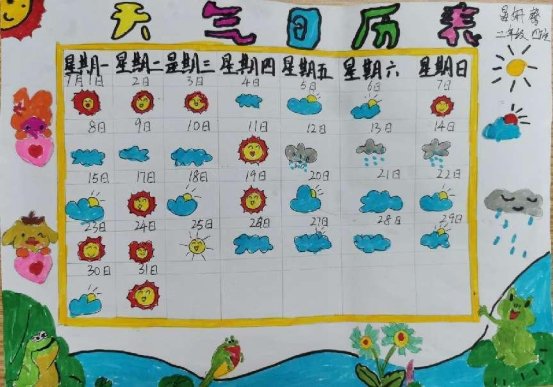 天气日历表
二年级四班
星期一 星期二 星期三 星期四 星期五 星期六 星期日
7月1日 2日 3日 4日 5日 6日 7日
8日 9日 10日 11日 12日 13日 14日
15日 17日 18日 19日 20日 21日 22日
23日 24日 25日 26日 27日 28日 29日
30日 31日